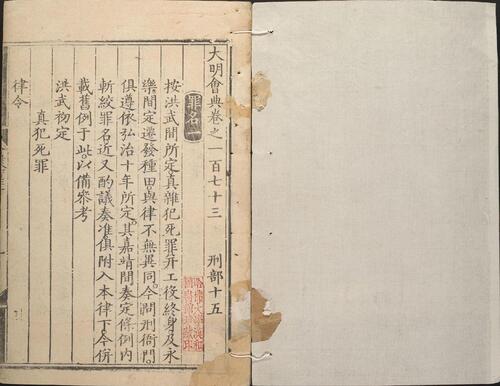 大明會典卷之一百七十三 刑部十五
罪名一
按洪武間所定真雜犯死罪并工役終身及永
樂間定遷發種田與律不無異同今問刑衙門
俱遵依弘治十年所定其嘉靖間奏定條例內
斬絞罪名近又酌議奏准俱附入本律下今併
載舊例于此以備參考
洪武初定
真犯死罪
律令